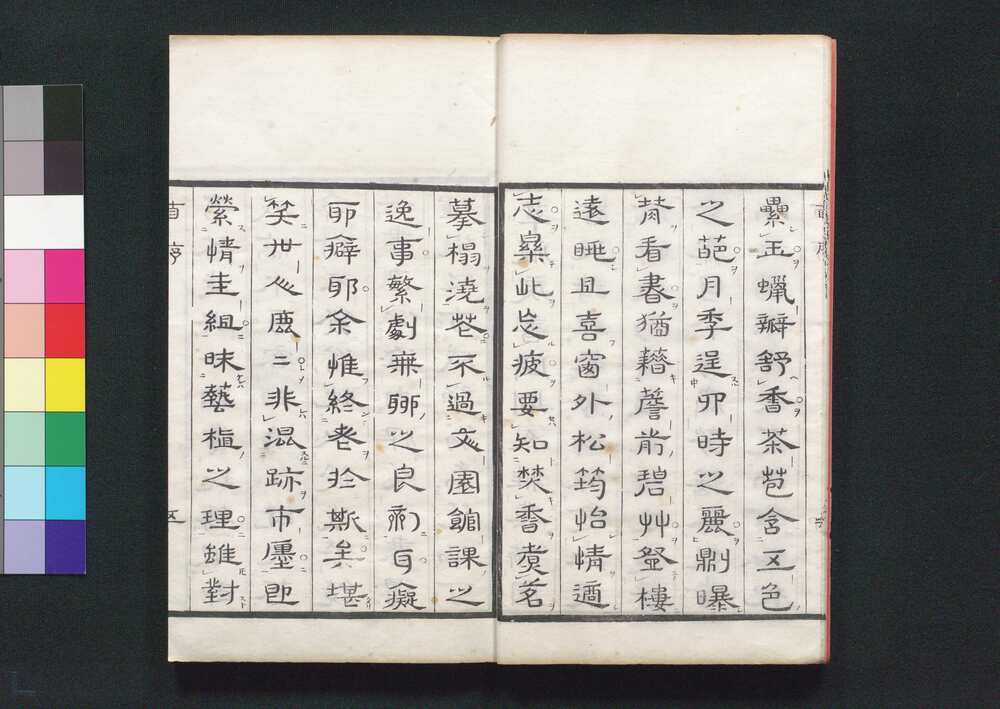 纍玉蠟瓣舒香茶苞含五色
之葩月季逞四時之麗則曝
背看書猶藉簷前碧艸登樓
遠眺且喜窗外松筠怡情適
志樂此忘疲要知焚香煮茗
摹榻澆花不過文園館課之
逸事繁劇無聊之良劑耳癡
耶癖耶余惟終老於斯矣堪
笑世人鹿〻非混跡市廛即
縈情圭組昧藝植之理雖對